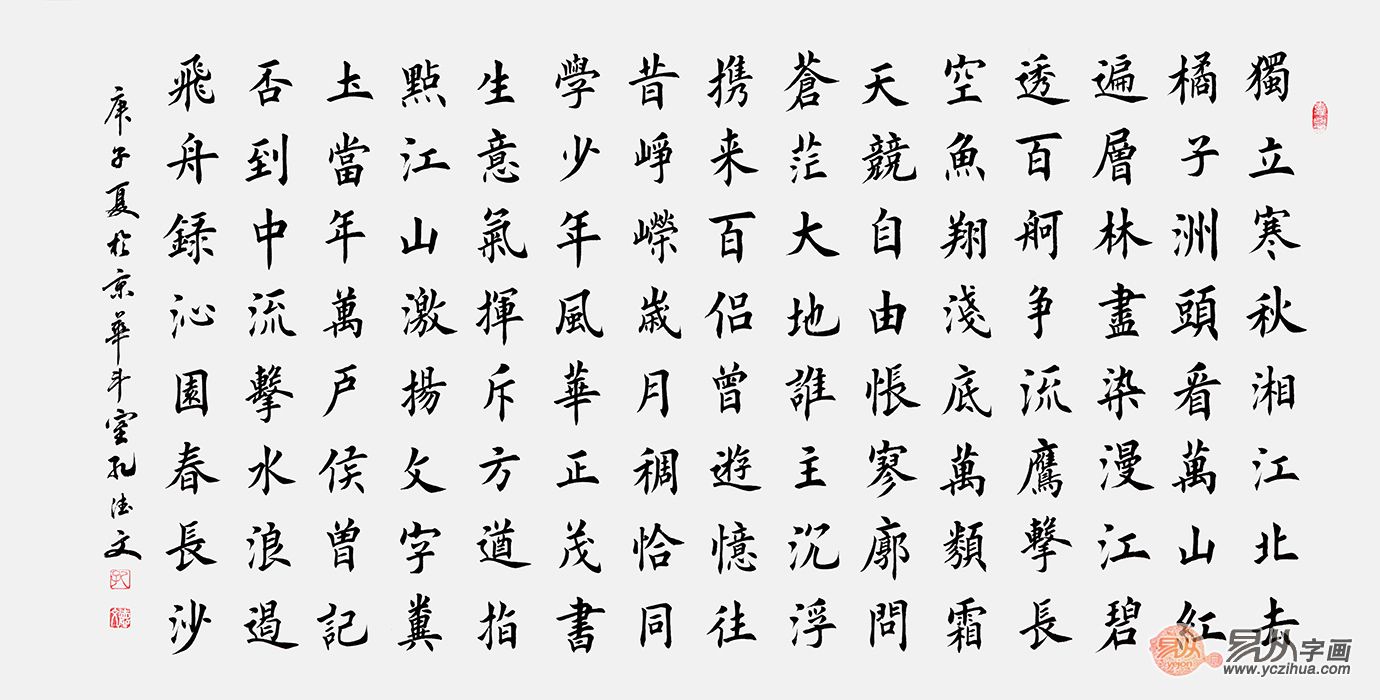 獨立寒秋湘江北去
橘子洲頭看萬山紅
遍層林盡染漫江碧
透百舸争流鷹擊長
空魚翔淺底萬類霜
天競自由悵寥廓問
蒼茫大地誰主沉浮
携来百侣曾遊憶往
昔崢嶸歲月稠恰同
學少年風華正茂書
生意氣揮斥方遒指
點江山激揚文字糞
土當年萬户侯曾記
否到中流擊水浪遏
飛舟録沁園春長沙
庚子夏於京華斗室孔德文
易从字画
www.yczihua.com